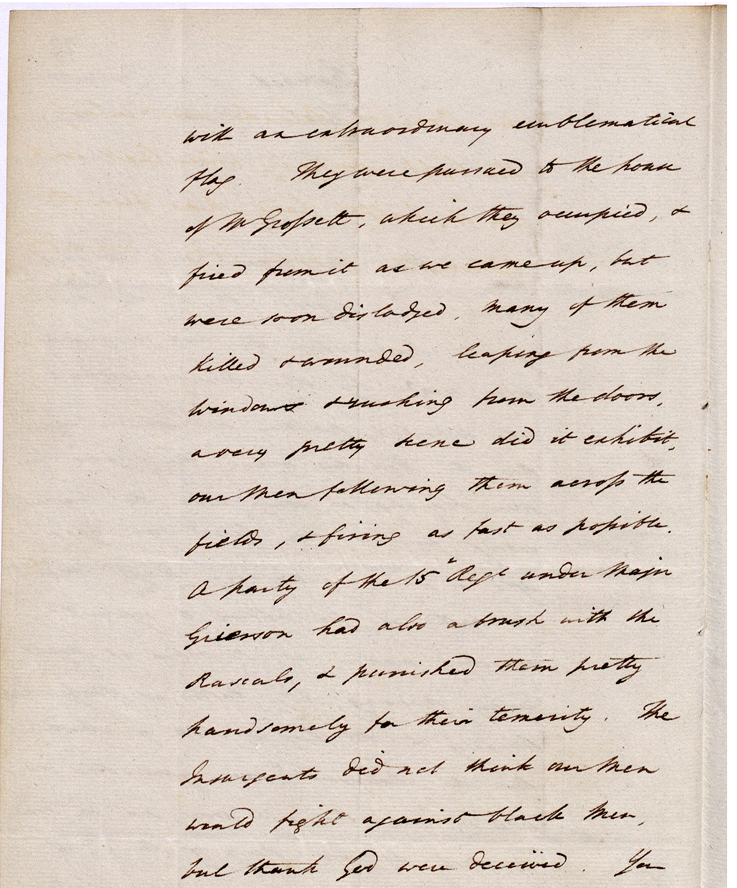 with an extraordinary emblematical
flag. They were pursued to the house
of Mr Grossett, which they occupied, &
fired from it as we came up, but
were soon dislodged, many of them
killed & wounded, leaping from the
windows & rushing from the doors,
a very pretty scene did it exhibit,
our Men following them across the
fields, & firing as fast as possible.
A party of the 15th Regt under Major
Grierson had also a brush with the
Rascals, & punished them pretty
handsomely for their temerity. The
Insurgents did not think our Men
would fight against black Men,
but thank God were deceived. You